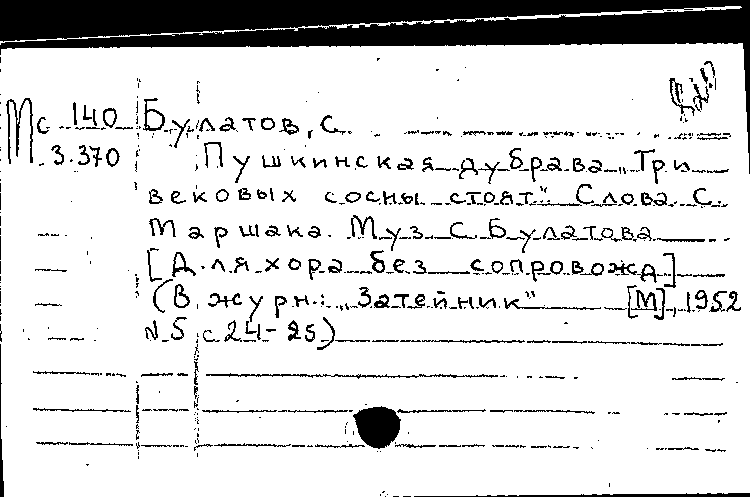 Мс 140 Булатов, С.
3.370 Пушкинская дубрава „Три
вековых сосны стоят". Слова С.
Маршака. Муз. С. Булатова
[Для хора без сопровожд]
(В журн.: „Затейник" [М], 1952
N.5 с 24-25)